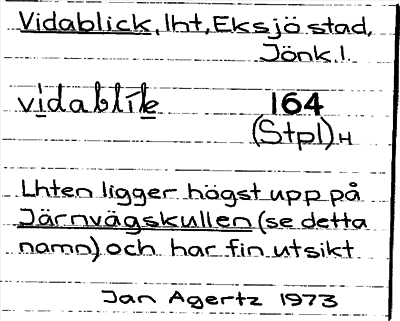 Vidablick, lht, Eksjö stad,
Jönk. l.
vidablik 164
(Stpl) H
Lhten ligger högst upp på
Järnvägskullen (se detta
namn) och har fin utsikt
Jan Agertz 1973